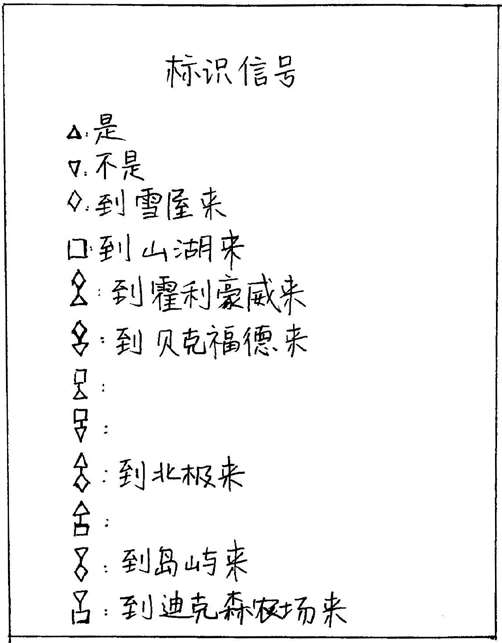 标识信号
△:是
▽:不是
◇:到雪屋来
□:到山湖来
:到霍利豪威来
:到贝克福德来
:
:
:到北极来
:
:到岛屿来
:到迪克森农场来